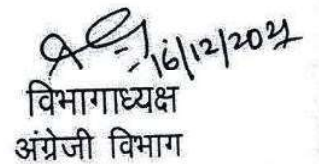 16/12/2024
विभागाध्यक्ष
अंग्रेजी विभाग